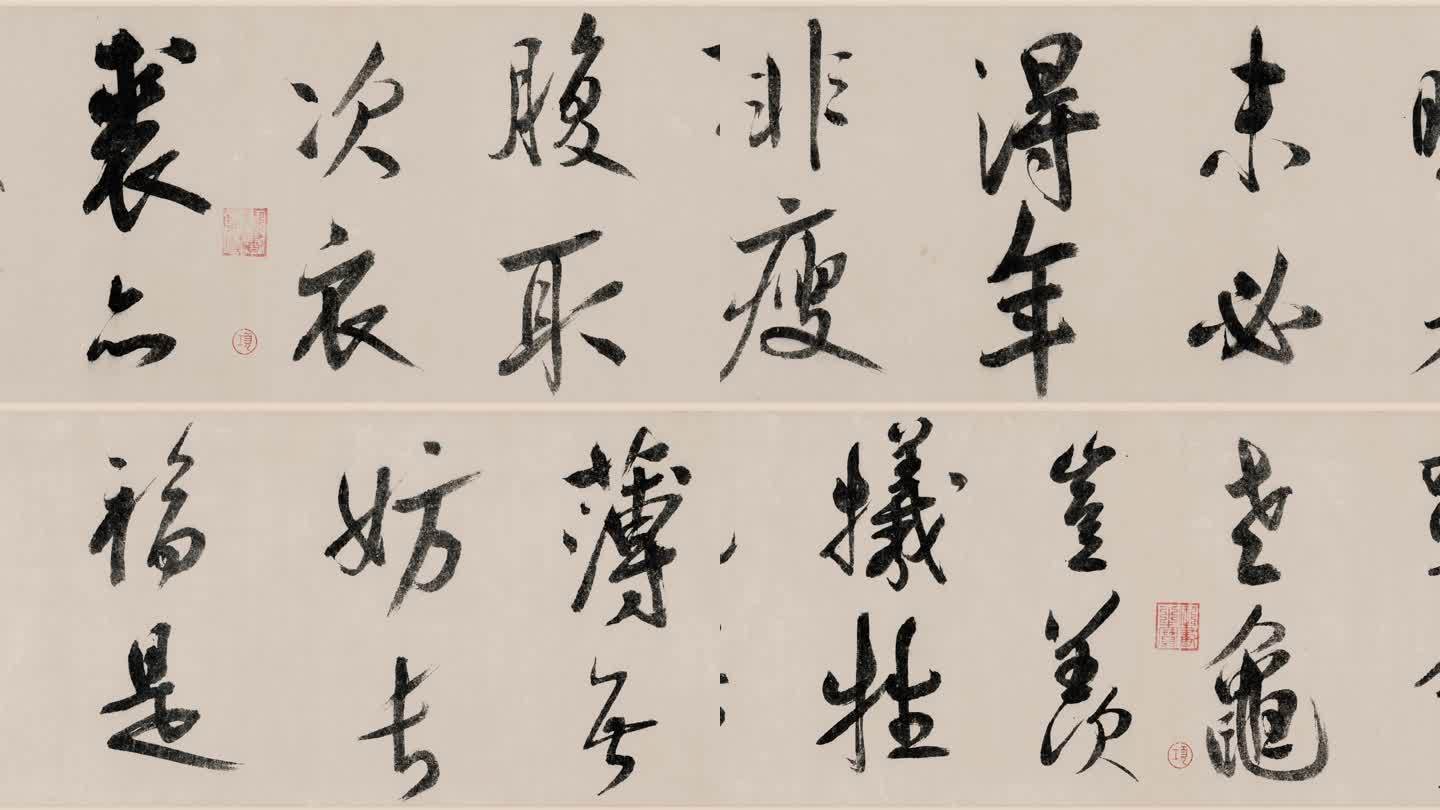 未必
得年
非瘦
腹取
次衣
裘亦
老龜
豈羨
犧牲
薄無
妨長
福是